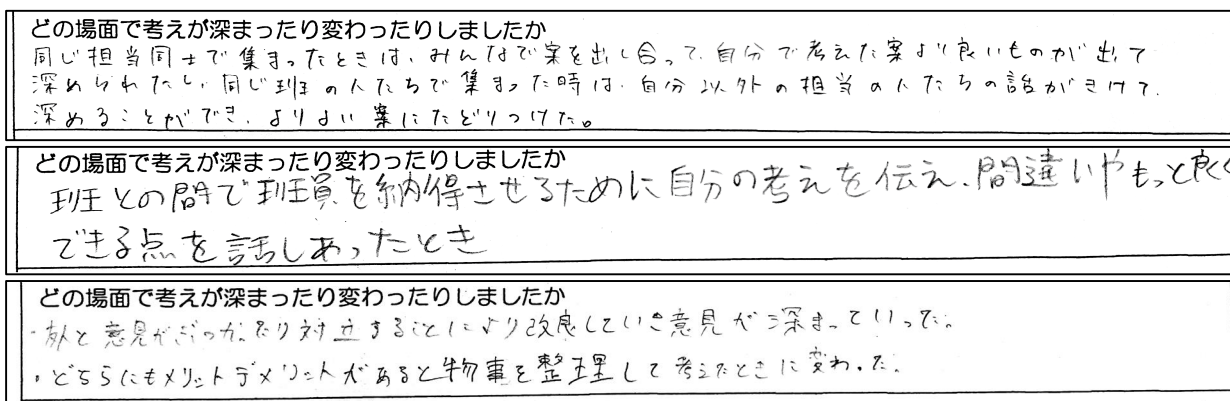 どの場面で考えが深まったり変わったりしましたか
同じ担当同士で集まったときは、みんなで案を出し合って、自分で考えた案より良いものが出て
深められたし、同じ班の人たちで集まった時は、自分以外の担当の人たちの話がきけて、
深めることができ、よりよい案にたどりつけた。
どの場面で考えが深まったり変わったりしましたか
班との間で班員を納得させるために自分の考えを伝え、間違いやもっと良く
できる点を話しあったとき
どの場面で考えが深まったり変わったりしましたか
・と意見がぶつかったり対立することにより改良していき意見が深まっていった。
・どちらにもメリットデメリットがあると物事を整理して考えたときに変わった。